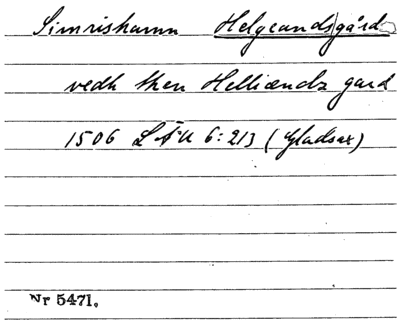 Simrishamn Helgeands|gård
vedh then Helliændz gard
1506 LÄU 6:213 (Gladsax)
Nr 5471.